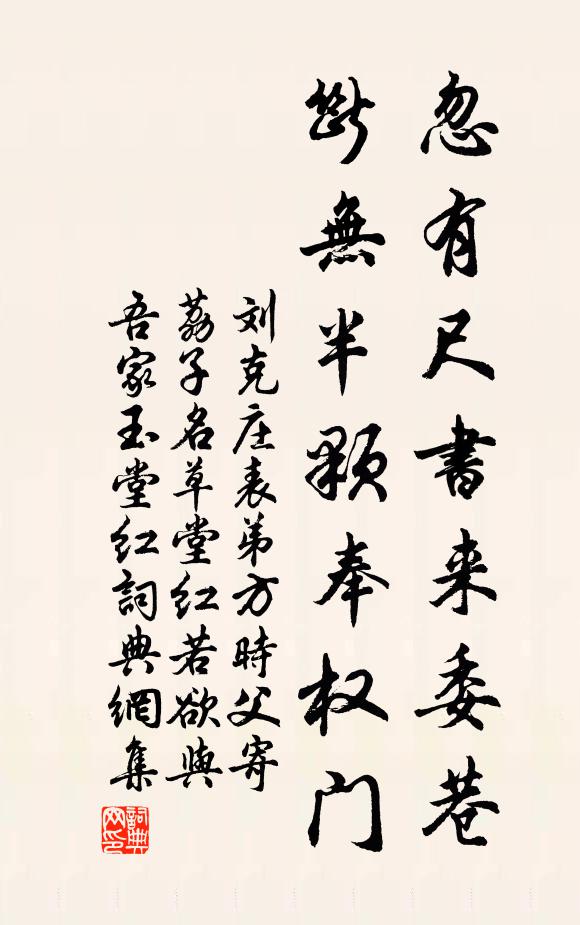 忽有尺書来委巷
斷無半顆奉权门
刘克庄表弟方時父寄
荔子名草堂红若欲與
吾家玉堂红詞典網集
詞典网印